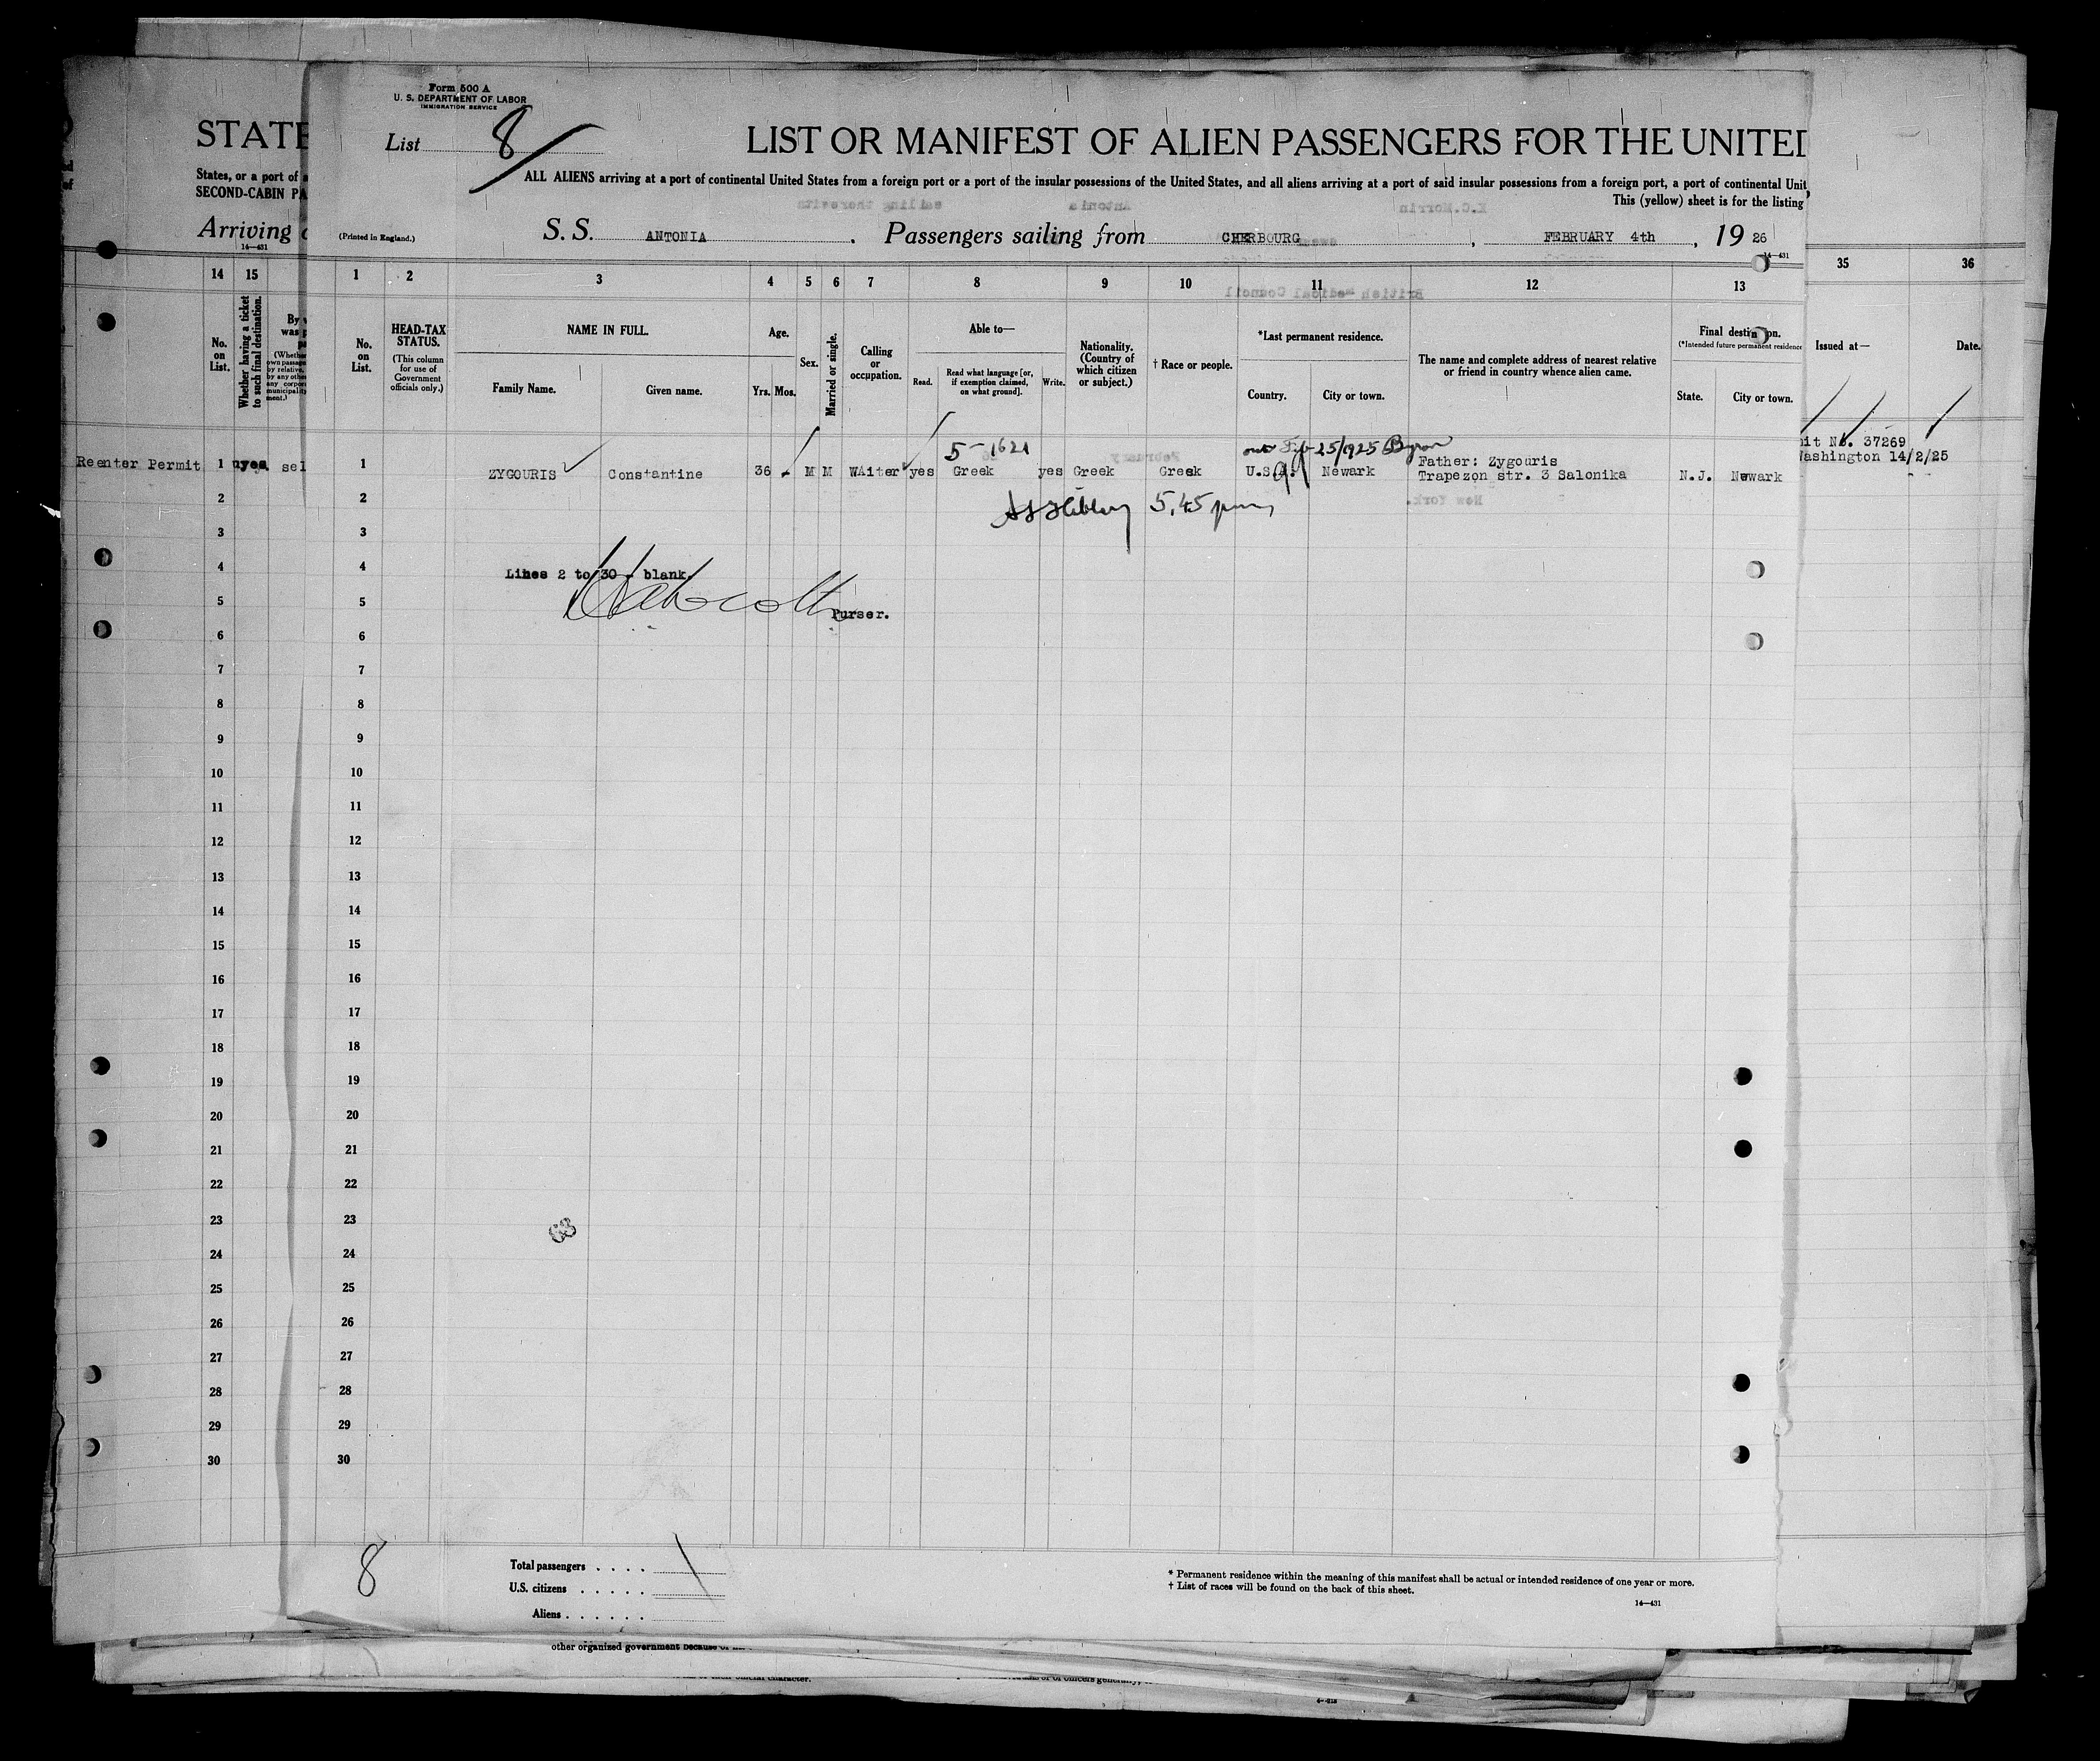 Form 500 A
U. S. DEPARTMENT OF LABOR
IMMIGRATION SERVICE
List 8
LIST OR MANIFEST OF ALIEN PASSENGERS FOR THE UNITED
ALL ALIENS arriving at a port of continental United States from a foreign port or a port of the insular possessions of the United States, and all aliens arriving at a port of said insular possessions from a foreign port, a port of continental Unit
This (yellow) sheet is for the listing
(Printed in England.)
S. S. ANTONIA . Passengers sailing from CHERBOURG , FEBRUARY 4th , 19 26
14—431
STATE
States, or a port of
SECOND-CABIN PA
Arriving
14—431
14 15
No. on List.
Whether having a ticket to such final destination.
1 2 3 4 5 6 7 8 9 10 11 12 13
No. on List.
HEAD-TAX STATUS.
(This column for use of Government officials only.)
NAME IN FULL.
Family Name. Given name.
Age.
Yrs. Mos.
Sex.
Married or single.
Calling or occupation.
Able to—
Read. Read what language [or, if exemption claimed, on what ground]. Write.
Nationality. (Country of which citizen or subject.)
† Race or people.
*Last permanent residence.
Country. City or town.
The name and complete address of nearest relative or friend in country whence alien came.
Final destination.
(*Intended future permanent residence
State. City or town.
35 36
Issued at— Date.
5-1621
Feb 25/1925 Byron
Reenter Permit 1 yes sel
1 ZYGOURIS Constantine 36 - M M WAiter yes Greek yes Greek Greek U.S.A. Newark Father: Zygouris
Trapezon str. 3 Salonika N.J. Newark
No. 37269
Washington 14/2/25
5,45 pm
Lines 2 to 30 - blank.
Purser.
2 2
3 3
4 4
5 5
6 6
7 7
8 8
9 9
10 10
11 11
12 12
13 13
14 14
15 15
16 16
17 17
18 18
19 19
20 20
21 21
22 22
23 23
24 24
25 25
26 26
27 27
28 28
29 29
30 30
8
Total passengers . . . . 1
U.S. citizens . . . . .
Aliens . . . . . .
* Permanent residence within the meaning of this manifest shall be actual or intended residence of one year or more.
† List of races will be found on the back of this sheet.
14—431
other organized government because of